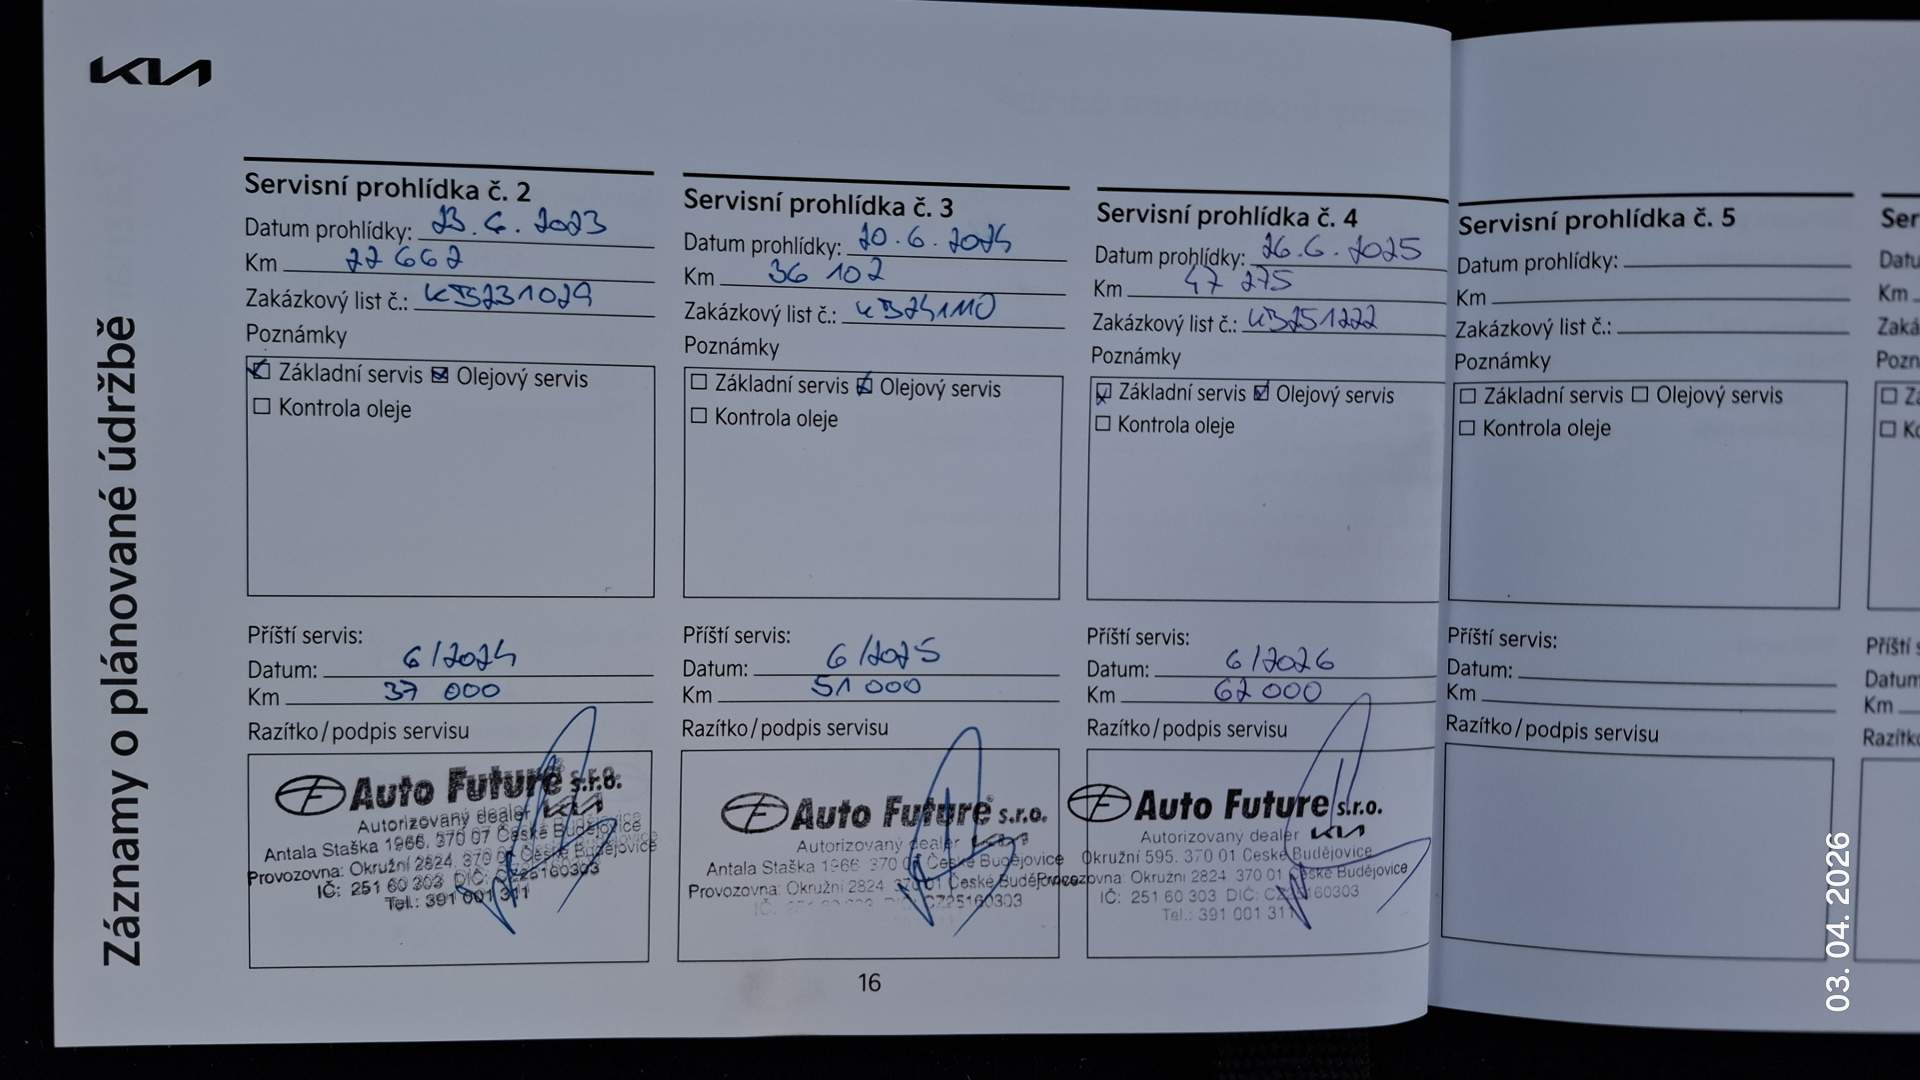 KIA
Záznamy o plánované údržbě
Servisní prohlídka č. 2
Datum prohlídky: 23.6.2023
Km 22 662
Zakázkový list č.: KB231029
Poznámky
Základní servis Olejový servis
Kontrola oleje
Příští servis:
Datum: 6/2024
Km 37 000
Razítko/podpis servisu
Auto Future s.r.o.
Autorizovaný dealer KIA
Antala Staška 1966, 370 07 České Budějovice
Provozovna: Okružní 2824, 370 01 České Budějovice
IČ: 251 60 303 DIČ: CZ25160303
Tel.: 391 001 311
Servisní prohlídka č. 3
Datum prohlídky: 20.6.2024
Km 36 102
Zakázkový list č.: KB241110
Poznámky
Základní servis Olejový servis
Kontrola oleje
Příští servis:
Datum: 6/2025
Km 51 000
Razítko/podpis servisu
Auto Future s.r.o.
Autorizovaný dealer KIA
Antala Staška 1966 370 07 České Budějovice
Provozovna: Okružní 2824 370 01 České Budějovice
IČ: 251 60 303 DIČ: CZ25160303
Servisní prohlídka č. 4
Datum prohlídky: 26.6.2025
Km 47 275
Zakázkový list č.: KB251222
Poznámky
Základní servis Olejový servis
Kontrola oleje
Příští servis:
Datum: 6/2026
Km 62 000
Razítko/podpis servisu
Auto Future s.r.o.
Autorizovaný dealer KIA
Okružní 595, 370 01 České Budějovice
Provozovna: Okružní 2824 370 01 České Budějovice
IČ: 251 60 303 DIČ: CZ25160303
Tel.: 391 001 311
16
Servisní prohlídka č. 5
Datum prohlídky:
Km
Zakázkový list č.:
Poznámky
Základní servis Olejový servis
Kontrola oleje
Příští servis:
Datum:
Km
Razítko/podpis servisu
Ser
Datu
Km
Zaká
Pozn
Zá
Ko
Příští s
Datum
Km
Razítko
03. 04. 2026